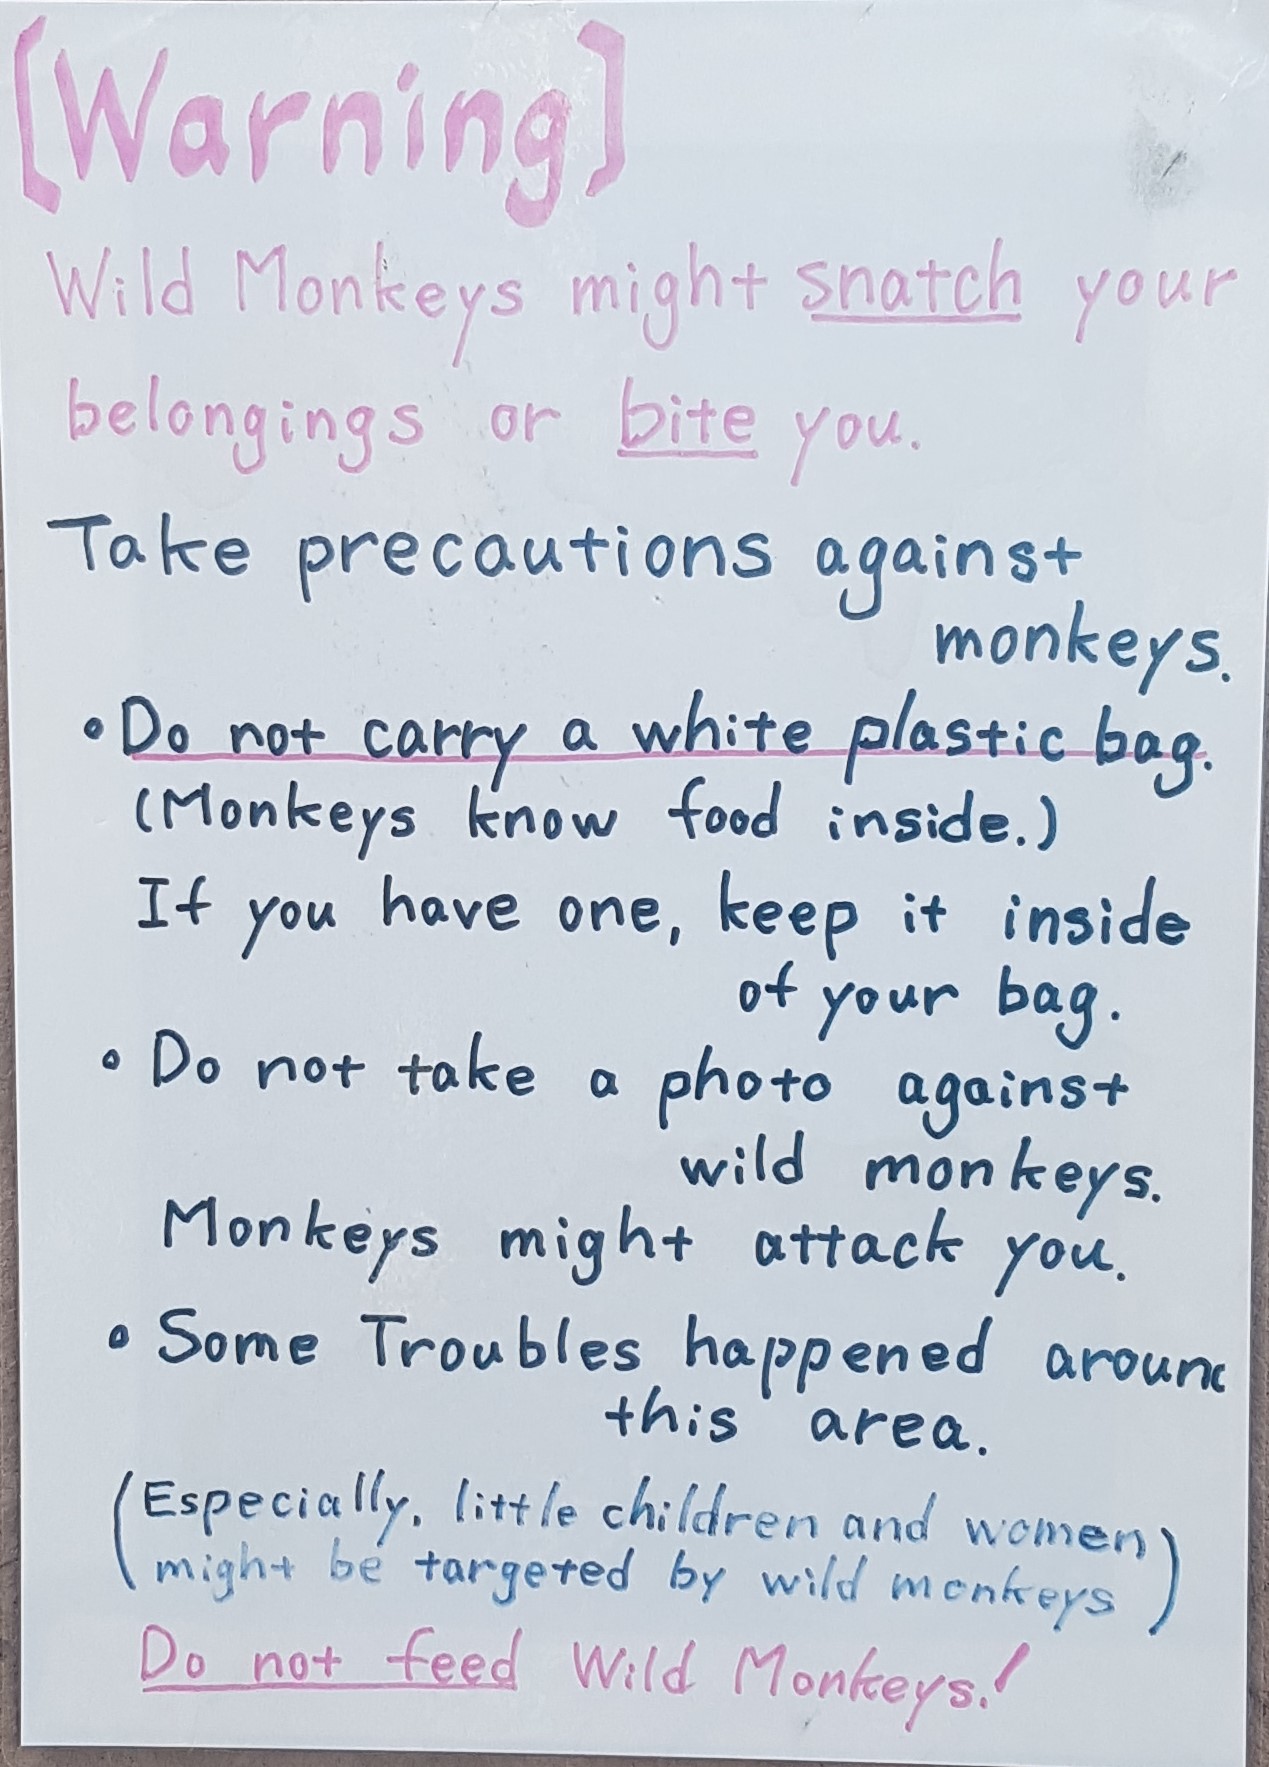 [Warning]
Wild Monkeys might snatch your
belongings or bite you.
Take precautions against
monkeys.
• Do not carry a white plastic bag.
(Monkeys know food inside.)
If you have one, keep it inside
of your bag.
• Do not take a photo against
wild monkeys.
Monkeys might attack you.
• Some Troubles happened around
this area.
(Especially, little children and women
might be targeted by wild monkeys)
Do not feed Wild Monkeys.!